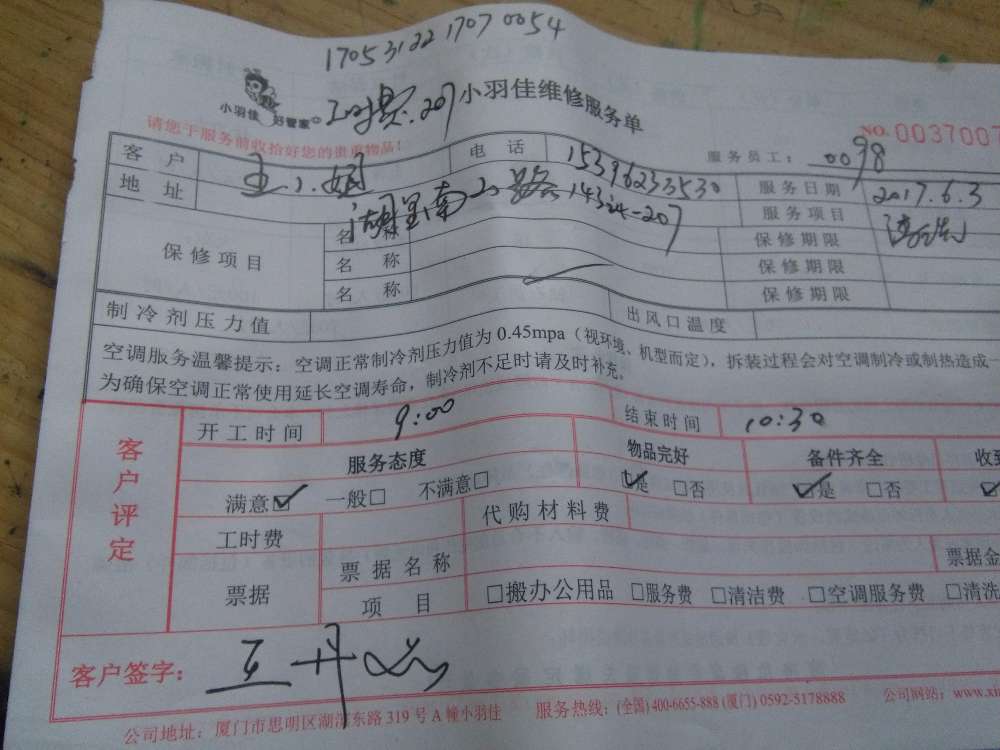 17053122 1707 0054
小羽佳 好管家 207 小羽佳维修服务单
请您于服务前收拾好您的贵重物品!
NO. 003700
服务员工: 0098
客户 王小娟 电话 15396233530 服务日期 2017.6.3
地址 湖里南山路143号-207 服务项目
保修项目 名称 保修期限
名称 保修期限
名称 保修期限
制冷剂压力值 出风口温度
空调服务温馨提示: 空调正常制冷剂压力值为 0.45mpa (视环境、机型而定), 拆装过程会对空调制冷或制热造成一
为确保空调正常使用延长空调寿命, 制冷剂不足时请及时补充。
客户评定
开工时间 9:00 结束时间 10:30
服务态度 物品完好 备件齐全 收到
满意☑ 一般□ 不满意□ ☑是 □否 ☑是 □否 ☑
工时费 代购材料费
票据 票据名称 票据金
项目 □搬办公用品 □服务费 □清洁费 □空调服务费 □清洗
客户签字: 王丹
公司地址: 厦门市思明区湖滨东路 319 号 A 幢小羽佳 服务热线: (全国) 400-6655-888 (厦门) 0592-5178888 公司网站: www.xi